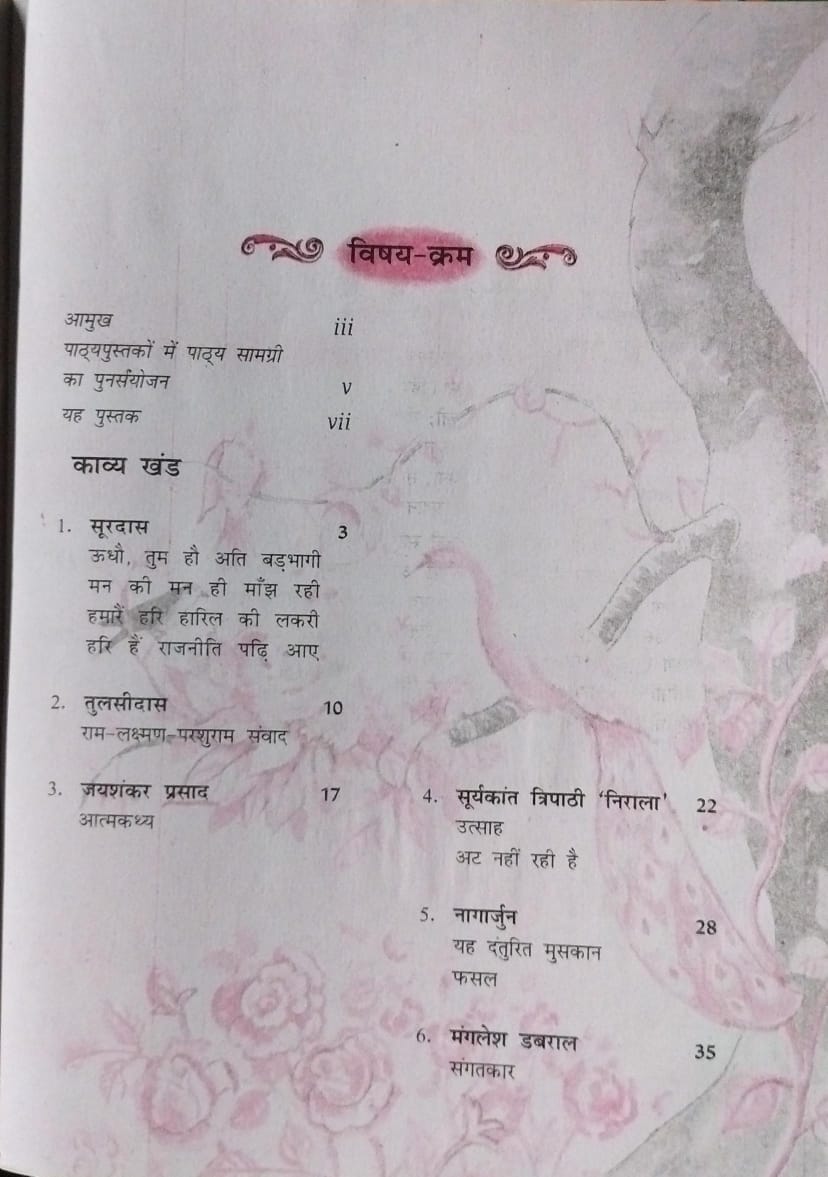 विषय-क्रम
आमुख iii
पाठ्यपुस्तकों में पाठ्य सामग्री
का पुनर्संयोजन v
यह पुस्तक vii
काव्य खंड
1. सूरदास 3
ऊधौ, तुम हौ अति बड़भागी
मन की मन ही माँझ रही
हमारैं हरि हारिल की लकरी
हरि हैं राजनीति पढ़ि आए
2. तुलसीदास 10
राम-लक्ष्मण-परशुराम संवाद
3. जयशंकर प्रसाद 17
आत्मकथ्य
4. सूर्यकांत त्रिपाठी ‘निराला’ 22
उत्साह
अट नहीं रही है
5. नागार्जुन 28
यह दंतुरित मुसकान
फसल
6. मंगलेश डबराल 35
संगतकार